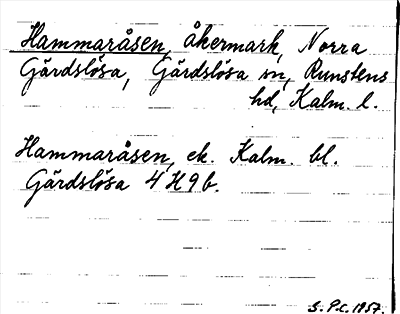 Hammaråsen, åkermark, Norra
Gärdslösa, Gärdslösa sn, Runstens
hd, Kalm. l.
Hammaråsen, ek. Kalm. bl.
Gärdslösa 4 H 9 b.
S. P.C. 1957.